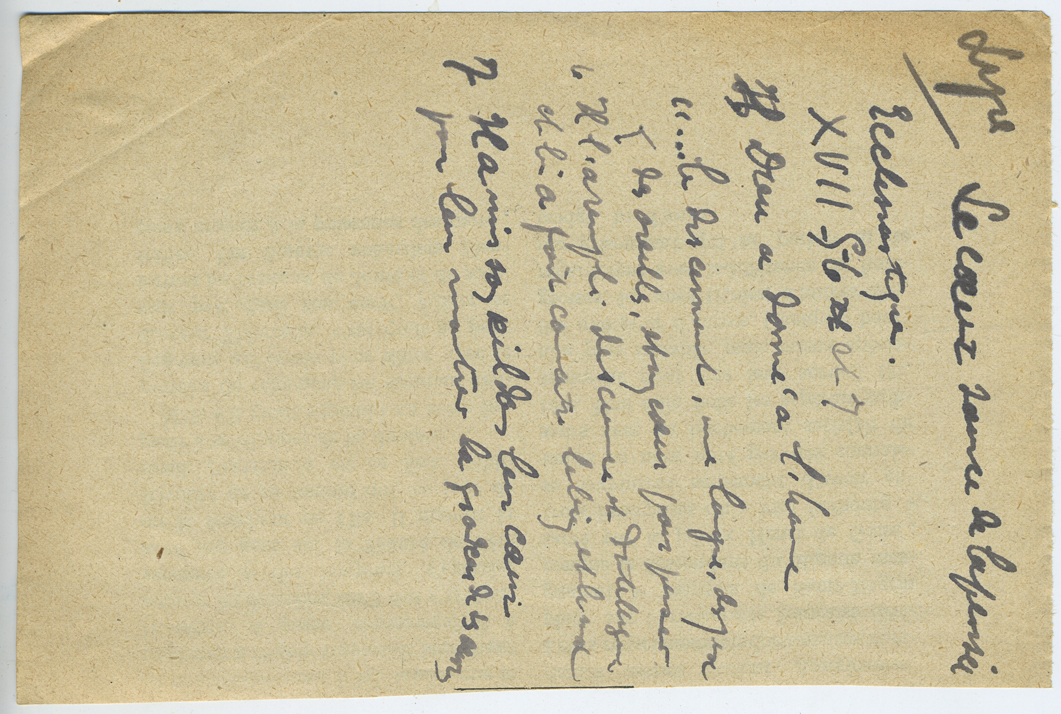 Type
Le cœur source de la pensée
Ecclesiastique.
XVII §6 et 7
Dieu a donné à l'home
"...le discernement, une langue, des yeux
des oreilles, et un cœur pour penser
6 Il l'a rempli de science et d'intelligence
et lui a fait connaître le bien et le mal
7 Il a mis son œil dans leur cœur
pour leur montrer la grandeur de ses œuv